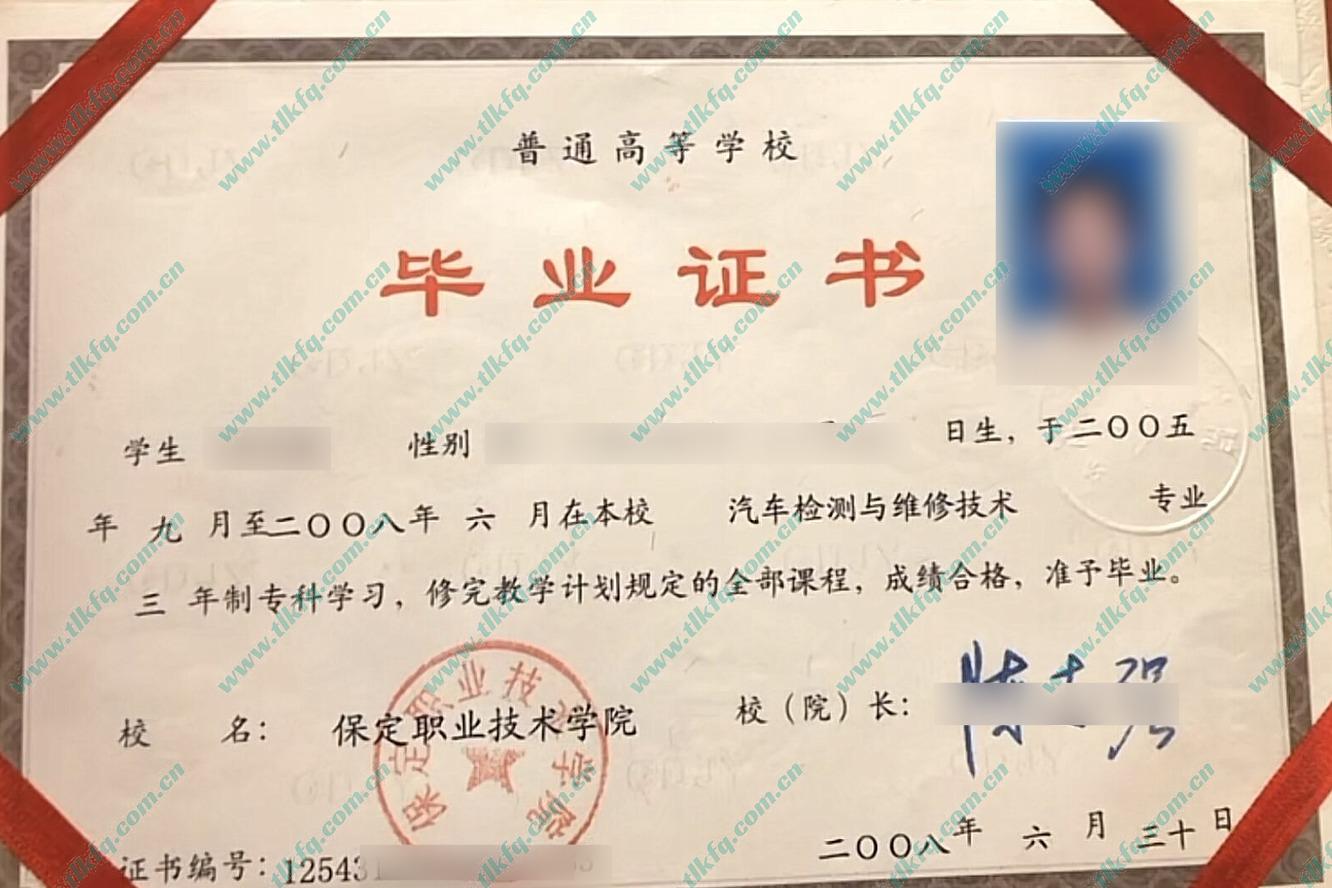 普通高等学校
毕业证书
学生 性别 日生，于二〇〇五
年 九 月至二〇〇八年 六 月在本校 汽车检测与维修技术 专业
三 年制专科学习，修完教学计划规定的全部课程，成绩合格，准予毕业。
校 名： 保定职业技术学院 校（院）长：
保定职业技术学院
二〇〇八年 六 月 三十 日
证书编号：12543
www.tlkfq.com.cn